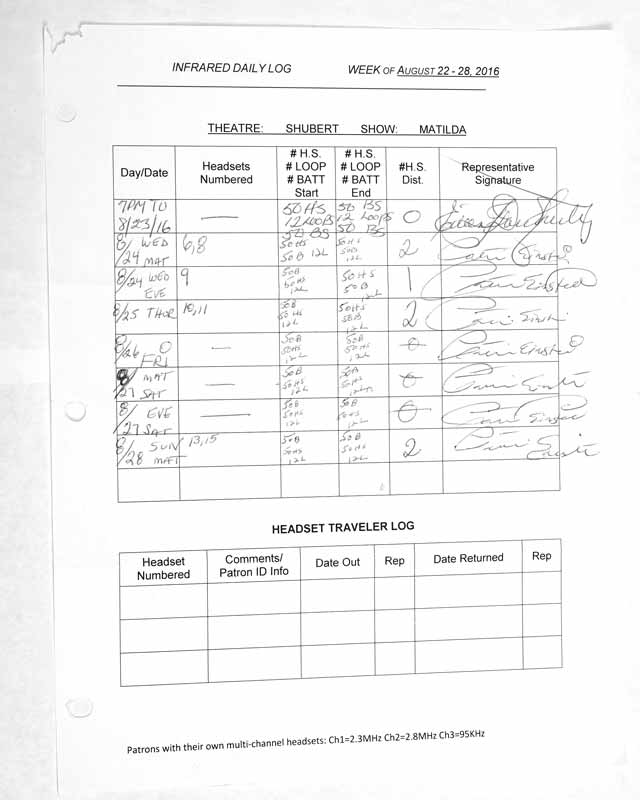 INFRARED DAILY LOG WEEK OF AUGUST 22 - 28, 2016
THEATRE: SHUBERT SHOW: MATILDA
Day/Date Headsets Numbered # H.S. # LOOP # BATT Start # H.S. # LOOP # BATT End #H.S. Dist. Representative Signature
7PM TO 8/23/16 — 50 HS 12 LOOPS 50 BS 50 BS 12 LOOPS 50 BS 0
8/24 WED MAT 6,8 50 HS 50 B 12L 50 HS 50B 12L 2
8/24 WED EVE 9 50B 50HS 12L 50HS 50B 12L 1
8/25 THOR 10,11 50B 50HS 12L 50HS 50B 12L 2
8/26 FRI — 50B 50HS 12L 50B 50HS 12L 0
8/27 MAT SAT — 50B 50HS 12L 50B 50HS 12L 0
8/27 EVE SAT — 50B 50HS 12L 50B 50HS 12L 0
8/28 SUN MAT 13,15 50B 50HS 12L 50B 50HS 12L 2
HEADSET TRAVELER LOG
Headset Numbered Comments/ Patron ID Info Date Out Rep Date Returned Rep
Patrons with their own multi-channel headsets: Ch1=2.3MHz Ch2=2.8MHz Ch3=95KHz